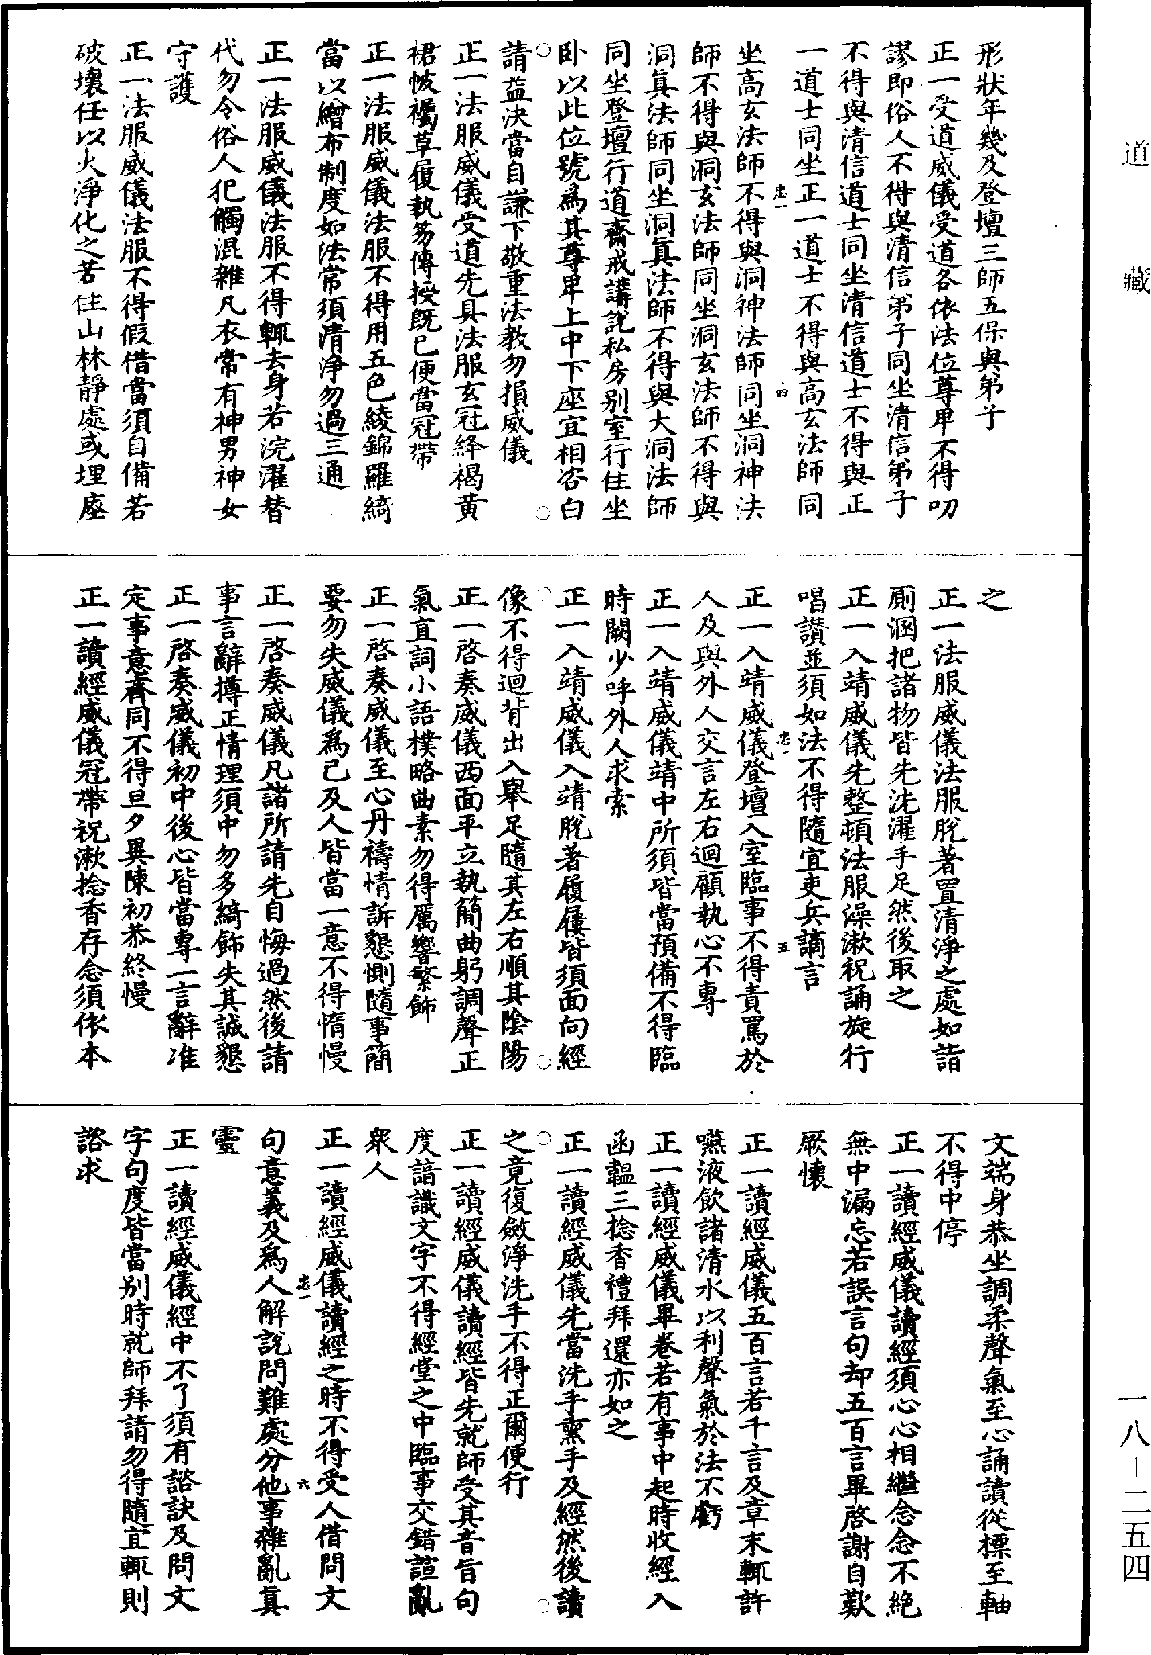 道藏
形狀年幾及登壇三師五保與弟子
正一受道威儀受道各依法位尊卑不得叨
謬即俗人不得與清信弟子同坐清信弟子
不得與清信道士同坐清信道士不得與正
一道士同坐正一道士不得與高玄法師同
坐高玄法師不得與洞神法師同坐洞神法
師不得與洞玄法師同坐洞玄法師不得與
洞真法師同坐洞真法師不得與大洞法師
同坐登壇行道齋戒講說私房別室行住坐
卧以此位號為其尊卑上中下座宜相咨白
請益決當自謙下敬重法教勿損威儀
正一法服威儀受道先具法服玄冠絳褐黃
裙帔襡草履執笏傳授既已便當冠帶
正一法服威儀法服不得用五色綾錦羅綺
當以繒布制度如法常須清淨勿過三通
正一法服威儀法服不得輒去身若浣濯替
代勿令俗人犯觸混雜凡衣常有神男神女
守護
正一法服威儀法服不得假借當須自備若
破壞任以火淨化之若住山林靜處或埋座
之
正一法服威儀法服脫著置清淨之處如詣
廁溷把諸物皆先洗濯手足然後取之
正一入靖威儀先整頓法服澡漱祝誦旋行
唱讚並須如法不得隨宜吏兵謫言
正一入靖威儀登壇入室臨事不得責罵於
人及與外人交言左右迴顧執心不專
正一入靖威儀靖中所須皆當預備不得臨
時闕少呼外人求索
正一入靖威儀入靖脫著履屨皆須面向經
像不得迴背出入舉足隨其左右順其陰陽
正一啓奏威儀西面平立執簡曲躬調聲正
氣直詞小語樸略曲素勿得厲響繁飾
正一啓奏威儀至心丹禱情訴懇惻隨事簡
要勿失威儀為己及人皆當一意不得惰慢
正一啓奏威儀凡諸所請先自悔過然後請
事言辭撙正情理須中勿多綺飾失其誠懇
正一啓奏威儀初中後心皆當專一言辭准
定事意齊同不得旦夕異陳初恭終慢
正一讀經威儀冠帶祝漱捻香存念須依本
文端身恭坐調柔聲氣至心誦讀從標至軸
不得中停
正一讀經威儀讀經須心心相繼念念不絕
無中漏忘若誤言句却五百言畢啓謝自歎
厥懷
正一讀經威儀五百言若千言及章末輒許
嚥液飲諸清水以利聲氣於法不虧
正一讀經威儀畢卷若有事中起時收經入
函韞三捻香禮拜還亦如之
正一讀經威儀先當洗手熏手及經然後讀
之竟復斂淨洗手不得正爾便行
正一讀經威儀讀經皆先就師受其音旨句
度諳識文字不得經堂之中臨事交錯諠亂
衆人
正一讀經威儀讀經之時不得受人借問文
句意義及為人解說問難處分他事雜亂真
靈
正一讀經威儀經中不了須有諮訣及問文
字句度皆當別時就師拜請勿得隨宜輒則
諮求
一八－二五四